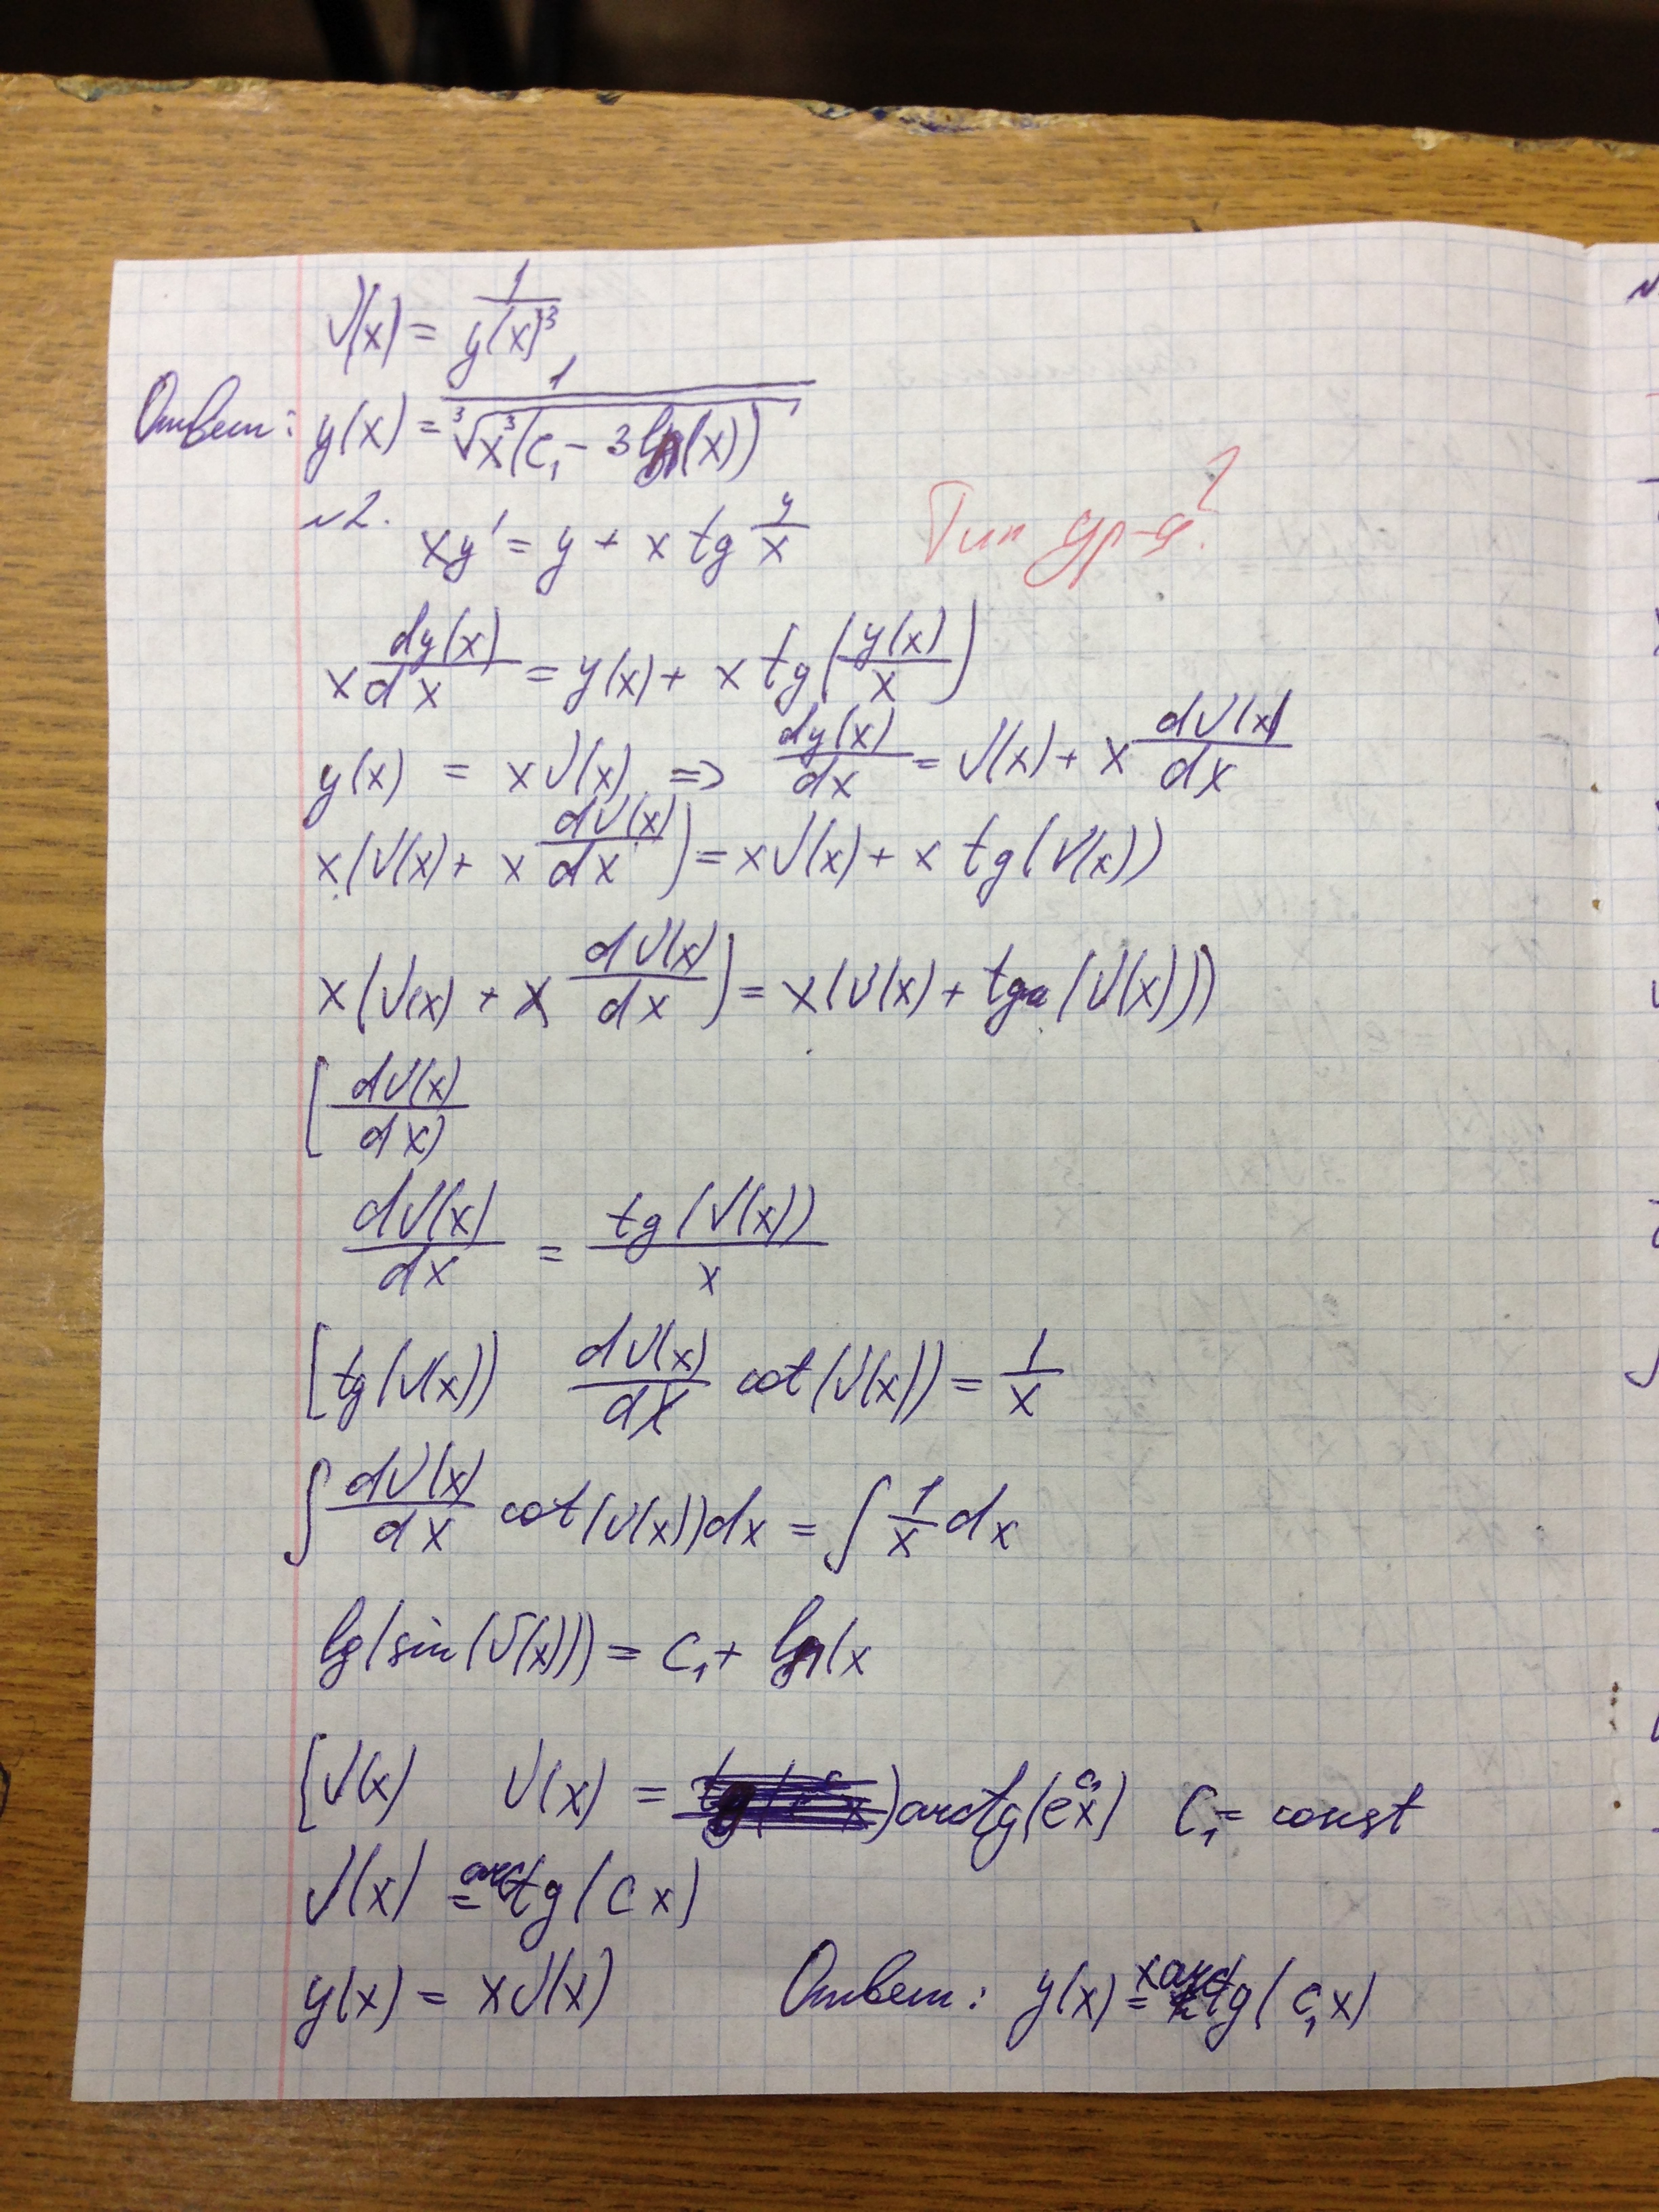 V(x) = 1/y(x)^3
Ответ: y(x) = 1/∛(x^3(C₁ - 3ln(x)))
N2.
xy' = y + x tg y/x
Тип ур-я?
x dy(x)/dx = y(x) + x tg(y(x)/x)
y(x) = xV(x) => dy(x)/dx = V(x) + x dV(x)/dx
x(V(x) + x dV(x)/dx) = xV(x) + x tg(V(x))
x(V(x) + x dV(x)/dx) = x(V(x) + tg(V(x)))
[dV(x)/dx)
dV(x)/dx = tg(V(x))/x
[tg(V(x)) dV(x)/dx cot(V(x)) = 1/x
∫ dV(x)/dx cot(V(x))dx = ∫ 1/x dx
lg(sin(V(x))) = C₁ + ln(x
[V(x) V(x) = ) arctg(e^C₁ x) C₁ = const
V(x) = arctg(cx)
y(x) = xV(x) Ответ: y(x) = x arctg(C₁x)